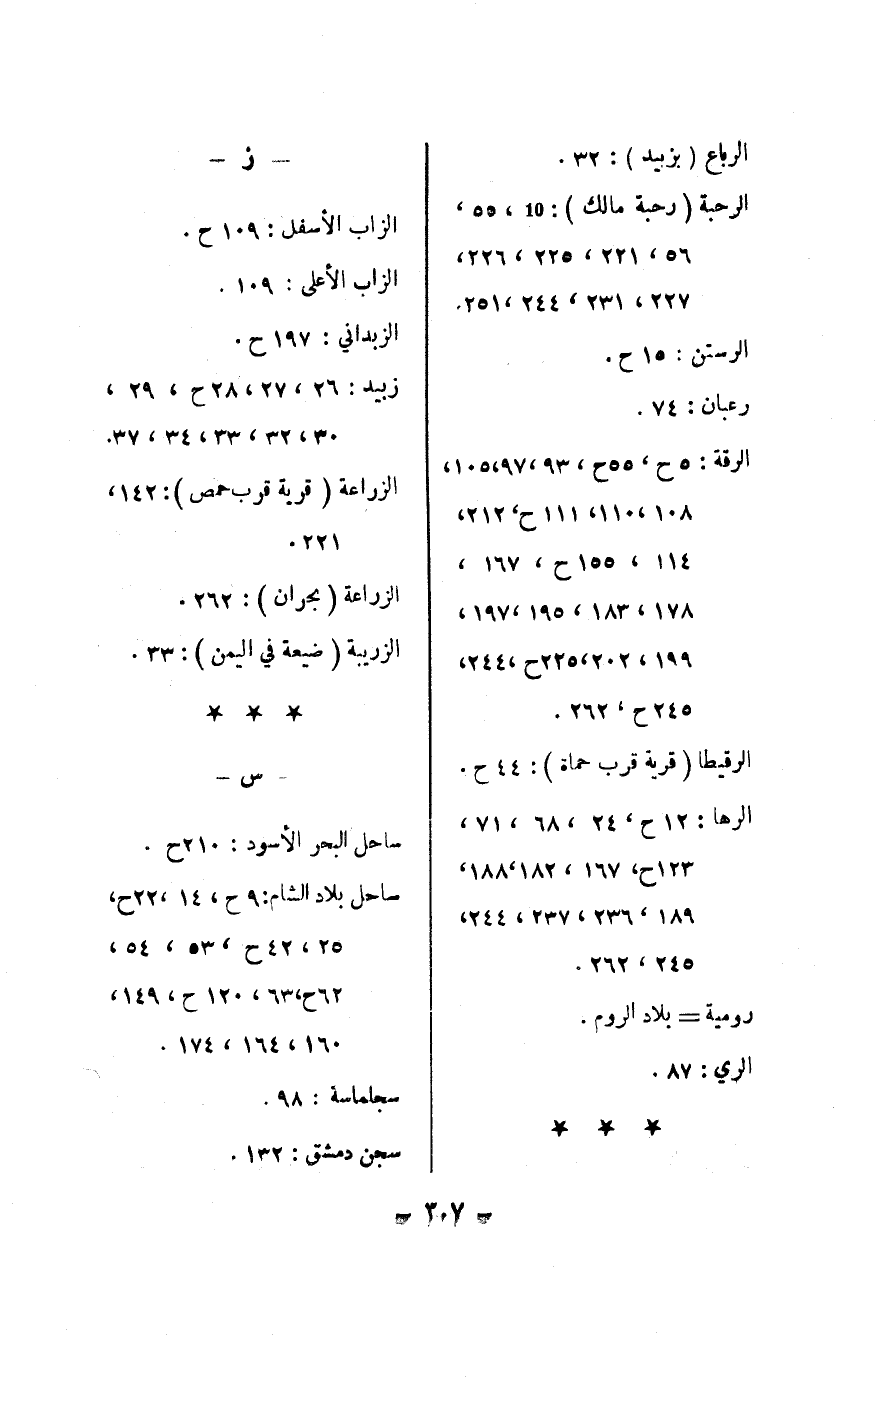 الرباع ( بزبيد ) : ٣٢ .
الرحبة ( رحبة مالك ) : 10 ، ٥٥ ،
٥٦ ، ٢٢١ ، ٢٢٥ ، ٢٢٦ ،
٢٢٧ ، ٢٣١ ، ٢٤٤ ، ٢٥١ .
الرستن : ١٥ ح .
رعبان : ٧٤ .
الرقة : ٥ ح ، ٥٥ح ، ٩٣ ،٩٧ ،١٠٥،
١٠٨ ،١١٠، ١١١ ح، ٢١٢،
١١٤ ، ١٥٥ ح ، ١٦٧ ،
١٧٨ ، ١٨٣ ، ١٩٥ ،١٩٧،
١٩٩ ، ٢٠٢ ،٢٢٥ح ،٢٤٤،
٢٤٥ ح ، ٢٦٢ .
الرقيطا ( قرية قرب حماة ) : ٤٤ ح .
الرها : ١٢ ح ، ٢٤ ، ٦٨ ، ٧١ ،
١٢٣ح، ١٦٧ ، ١٨٢ ،١٨٨،
١٨٩ ، ٢٣٦ ، ٢٣٧ ، ٢٤٤،
٢٤٥ ، ٢٦٢ .
رومية = بلاد الروم .
الري : ٨٧ .
★ ★ ★
– ز –
الزاب الأسفل : ١٠٩ ح .
الزاب الأعلى : ١٠٩ .
الزبداني : ١٩٧ ح .
زبيد : ٢٦ ، ٢٧ ، ٢٨ ح ، ٢٩ ،
٣٠ ، ٣٢ ، ٣٣ ، ٣٤ ، ٣٧ .
الزراعة ( قرية قرب حمص ) : ١٤٢ ،
٢٢١ .
الزراعة ( بحران ) : ٢٦٢ .
الزريبة ( ضيعة في اليمن ) : ٣٣ .
★ ★ ★
- س –
ساحل البحر الأسود : ٢١٠ح .
ساحل بلاد الشام: ٩ ح ، ١٤ ،٢٢ح،
٢٥ ، ٤٢ ح ، ٥٣ ، ٥٤ ،
٦٢ح،٦٣ ، ١٢٠ ح ، ١٤٩،
١٦٠ ، ١٦٤ ، ١٧٤ .
سجلماسة : ٩٨ .
سجن دمشق : ١٣٢ .
– ٣٠٧ –